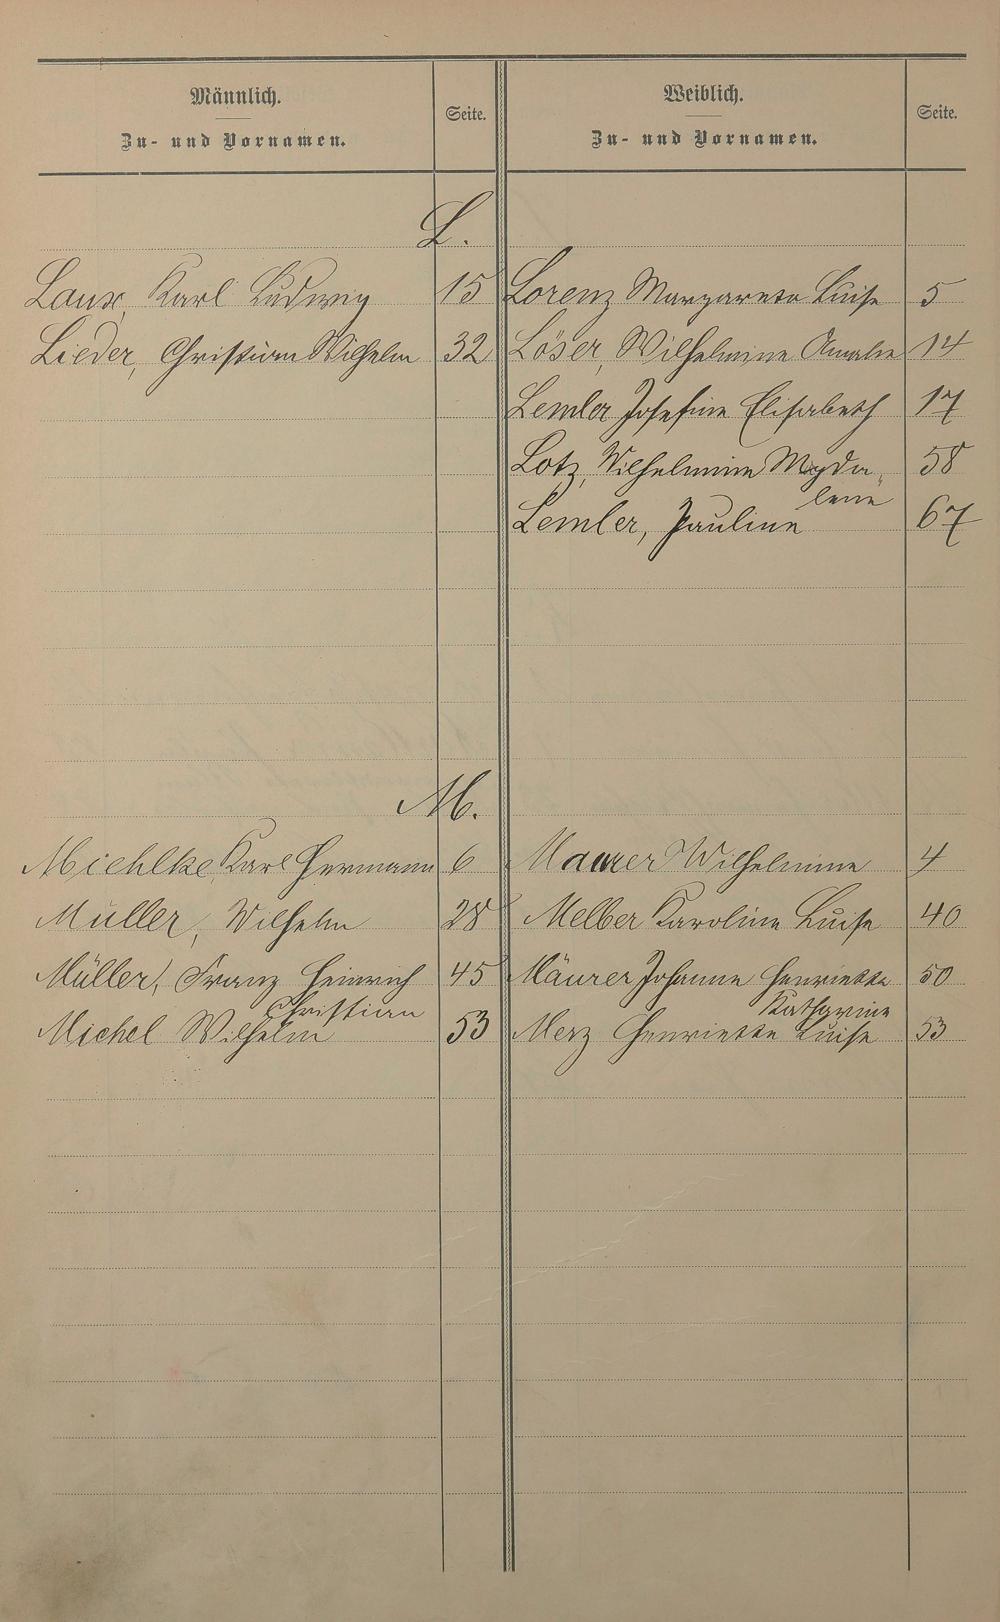 Männlich.
Zu- und Vornamen.
Seite.
Weiblich.
Zu- und Vornamen.
Seite.
L.
Laux, Karl Ludwig 15 Lorenz Margareta Luise 5
Lieder, Christian Wilhelm 32 Löser, Wilhelmine Amalie 14
Lemler Josefine Elisabeth 17
Lotz, Wilhelmine Magda- 58
lene
Lemler, Pauline 67
M.
Miehlke, Karl Hermann 6 Maurer Wilhelmine 4
Müller, Wilhelm 28 Melber Karoline Luise 40
Müller, Franz Heinrich 45 Mäurer Johanne Henriette 50
Christian Katharine
Michel Wilhelm 53 Merz Henriette Luise 53